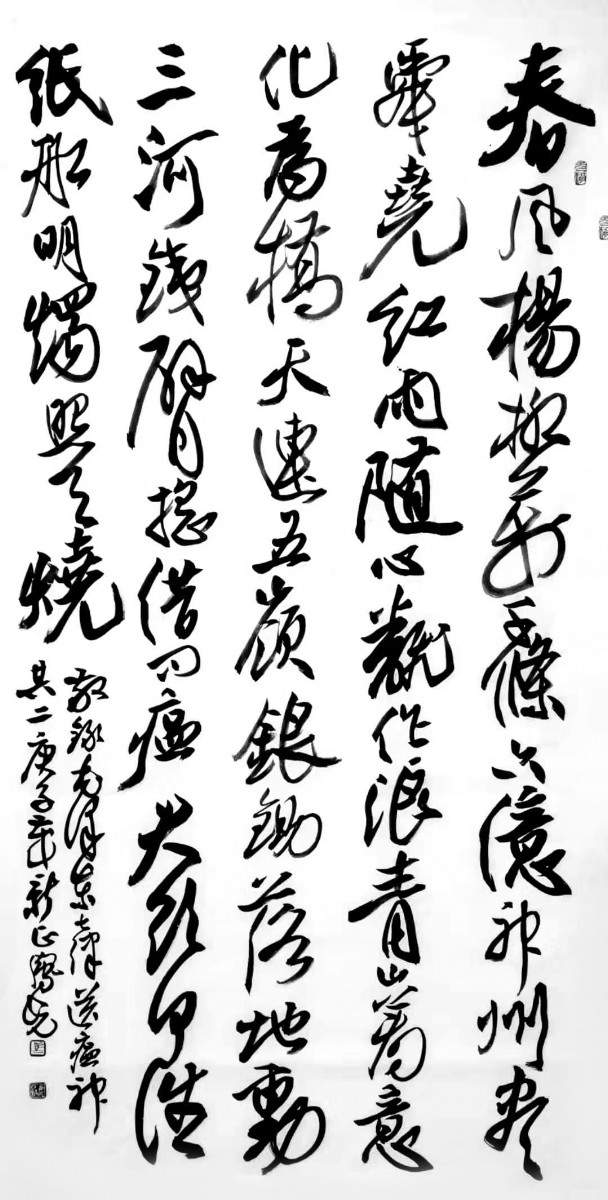 春風楊柳萬千條六億神州盡
舜堯紅雨隨心翻作浪青山著意
化為橋天連五嶺銀鋤落地動
三河鐵臂搖借问瘟君欲何往
紙船明燭照天燒
敬錄毛澤東七律送瘟神
其二庚子年新正